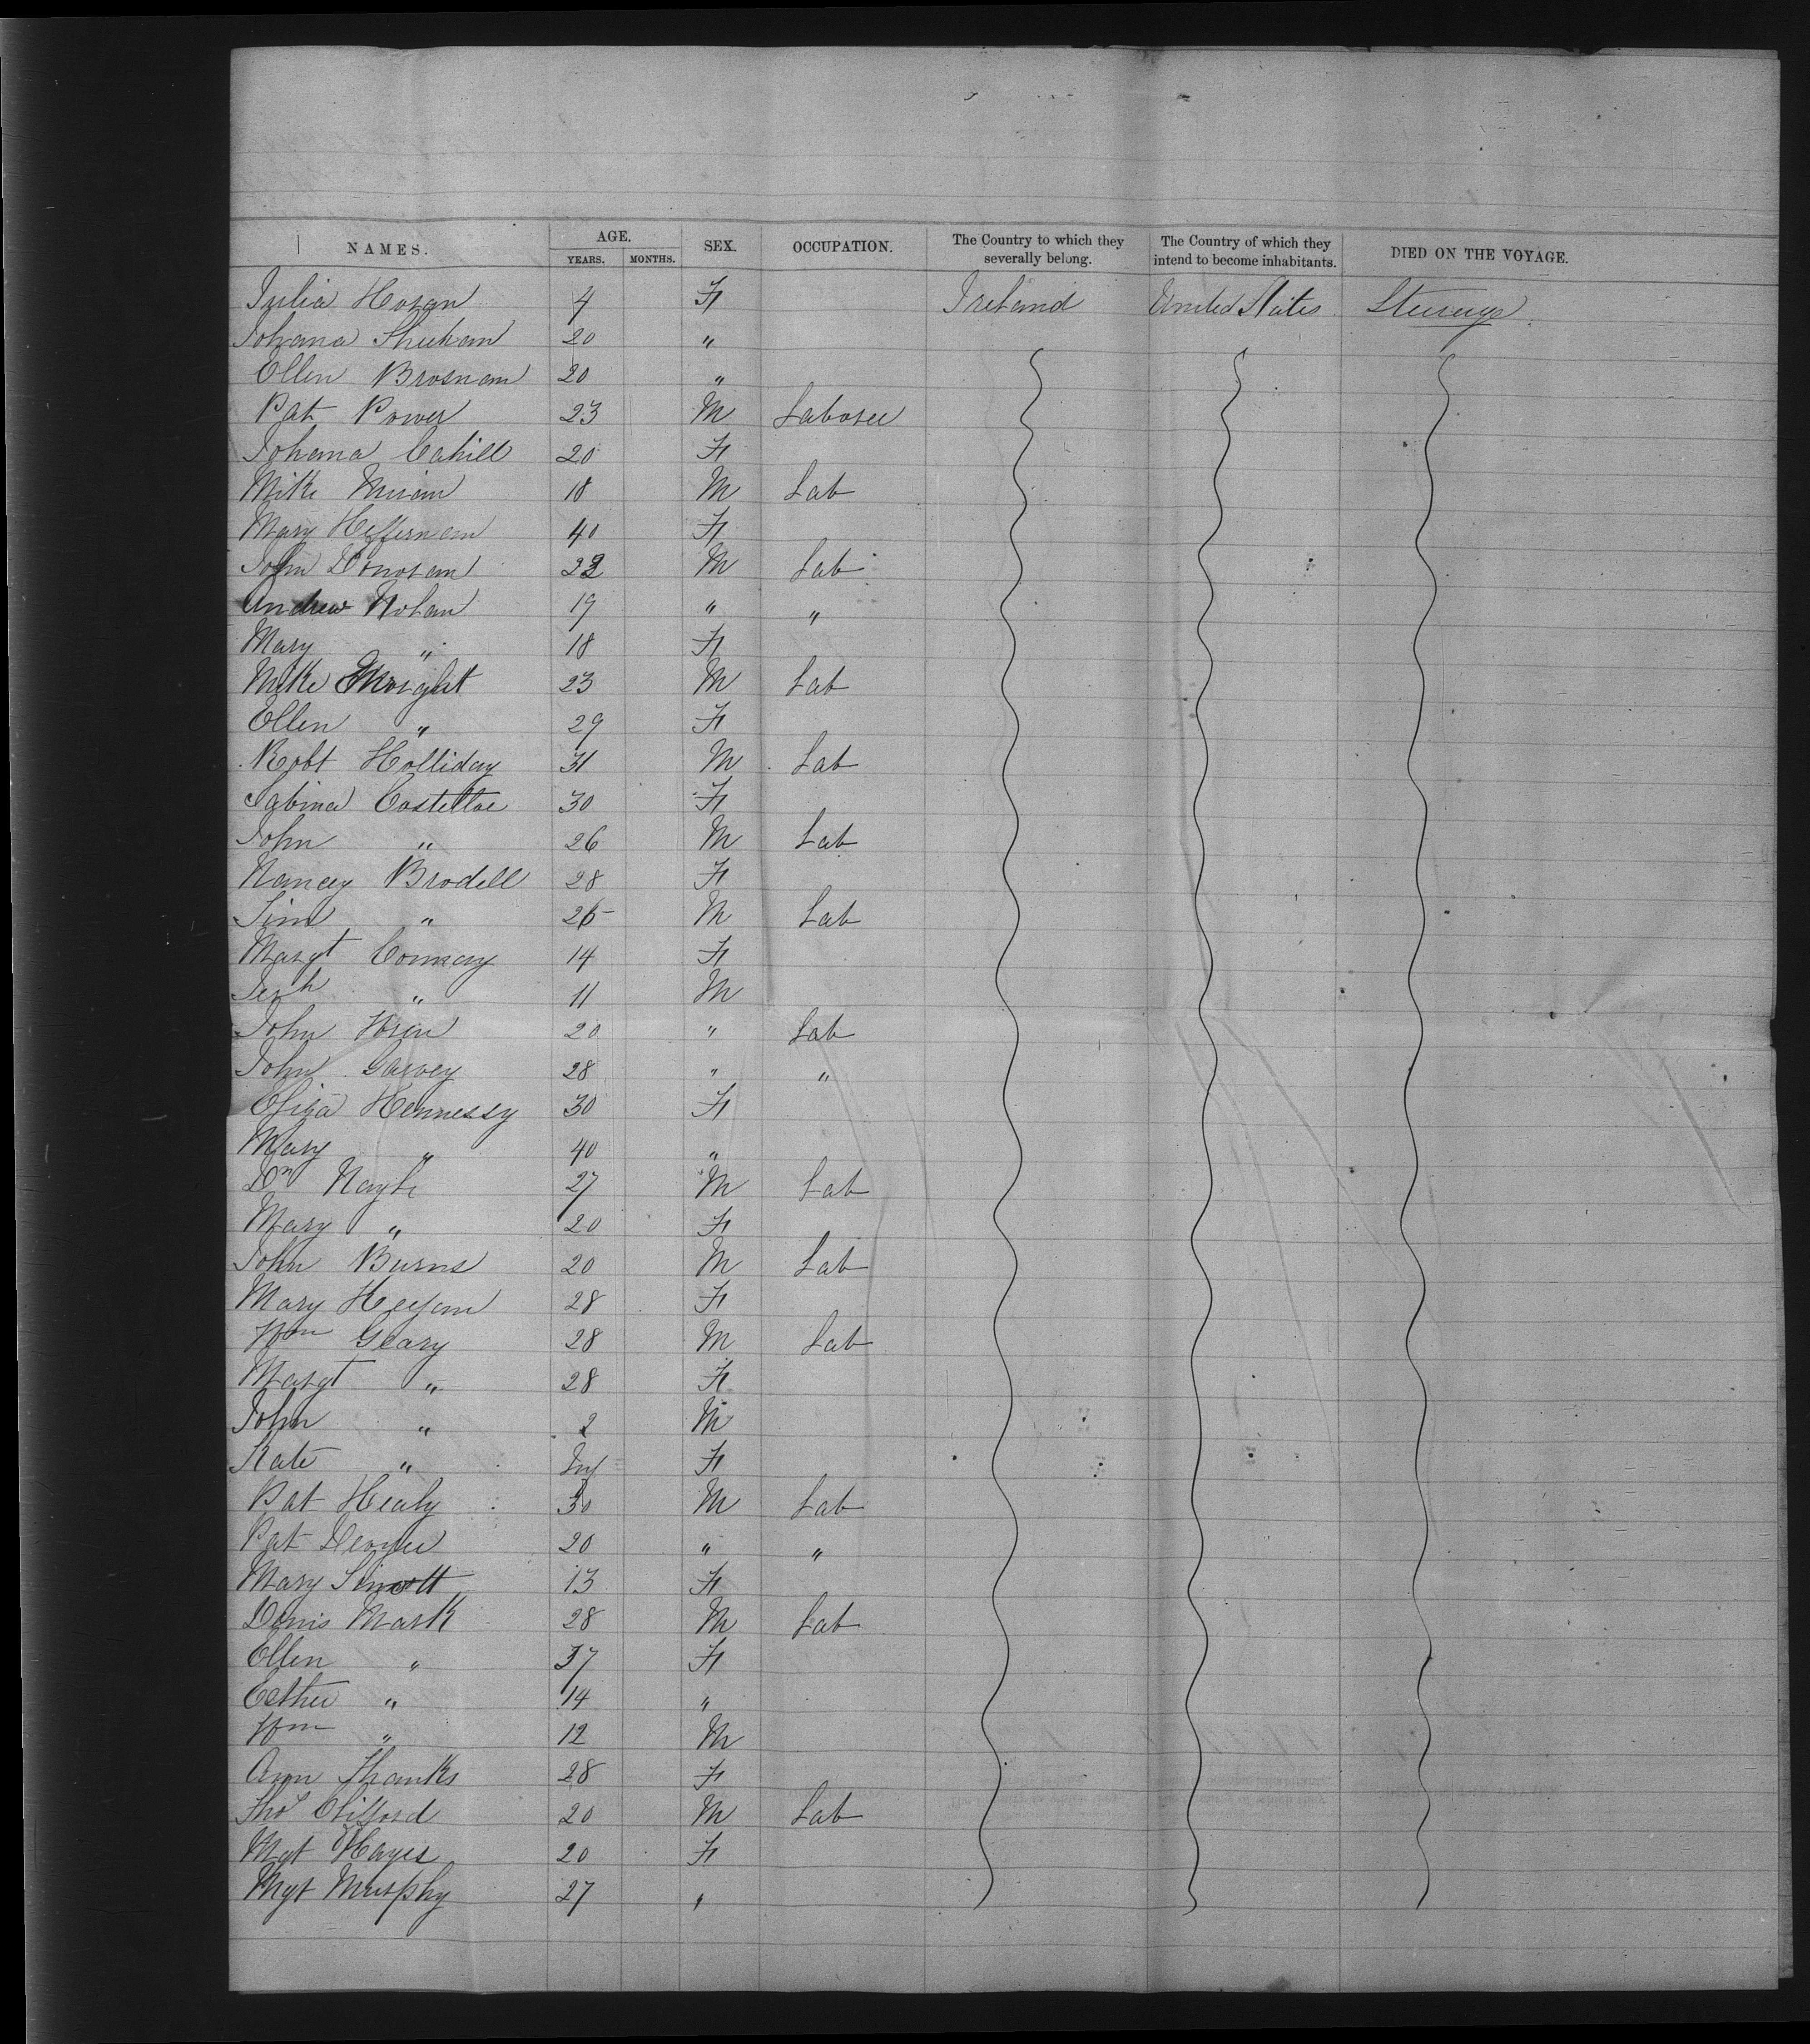 NAMES. AGE. SEX. OCCUPATION. The Country to which they severally belong. The Country of which they intend to become inhabitants. DIED ON THE VOYAGE.
YEARS. MONTHS.
Julia Horan 4 F Ireland United States Steerage
Johana Sheehan 20 "
Ellen Brosnan 20 "
Pat Power 23 M Laborer
Johana Cahill 20 F
Mike 18 M Lab
Mary Heffernan 40 F
John Donovan 22 M Lab
Andrew Nolan 19 " "
Mary " 18 F
Mike 23 M Lab
Ellen " 29 F
Robt Holliday 31 M Lab
Sabina Costelloe 30 F
John " 26 M Lab
Nancy Brodell 28 F
Jim " 26 M Lab
Margt Conway 14 F
Jerh " 11 M
John 20 " Lab
John Garvey 28 " "
Eliza Hennessy 30 F
Mary " 40 "
Dn Nagle 27 M Lab
Mary " 20 F
John Burns 20 M Lab
Mary Heefan 28 F
Wm Geary 28 M Lab
Margt " 28 F
John " 2 M
Kate " Inf F
Pat Healy 30 M Lab
Pat 20 " "
Mary Sinott 13 F
Denis Mark 28 M Lab
Ellen " 37 F
Esther " 14 "
Wm " 12 M
Ann Shanks 28 F
Thos Clifford 20 M Lab
Mgt Hayes 20 F
Mgt Murphy 27 "